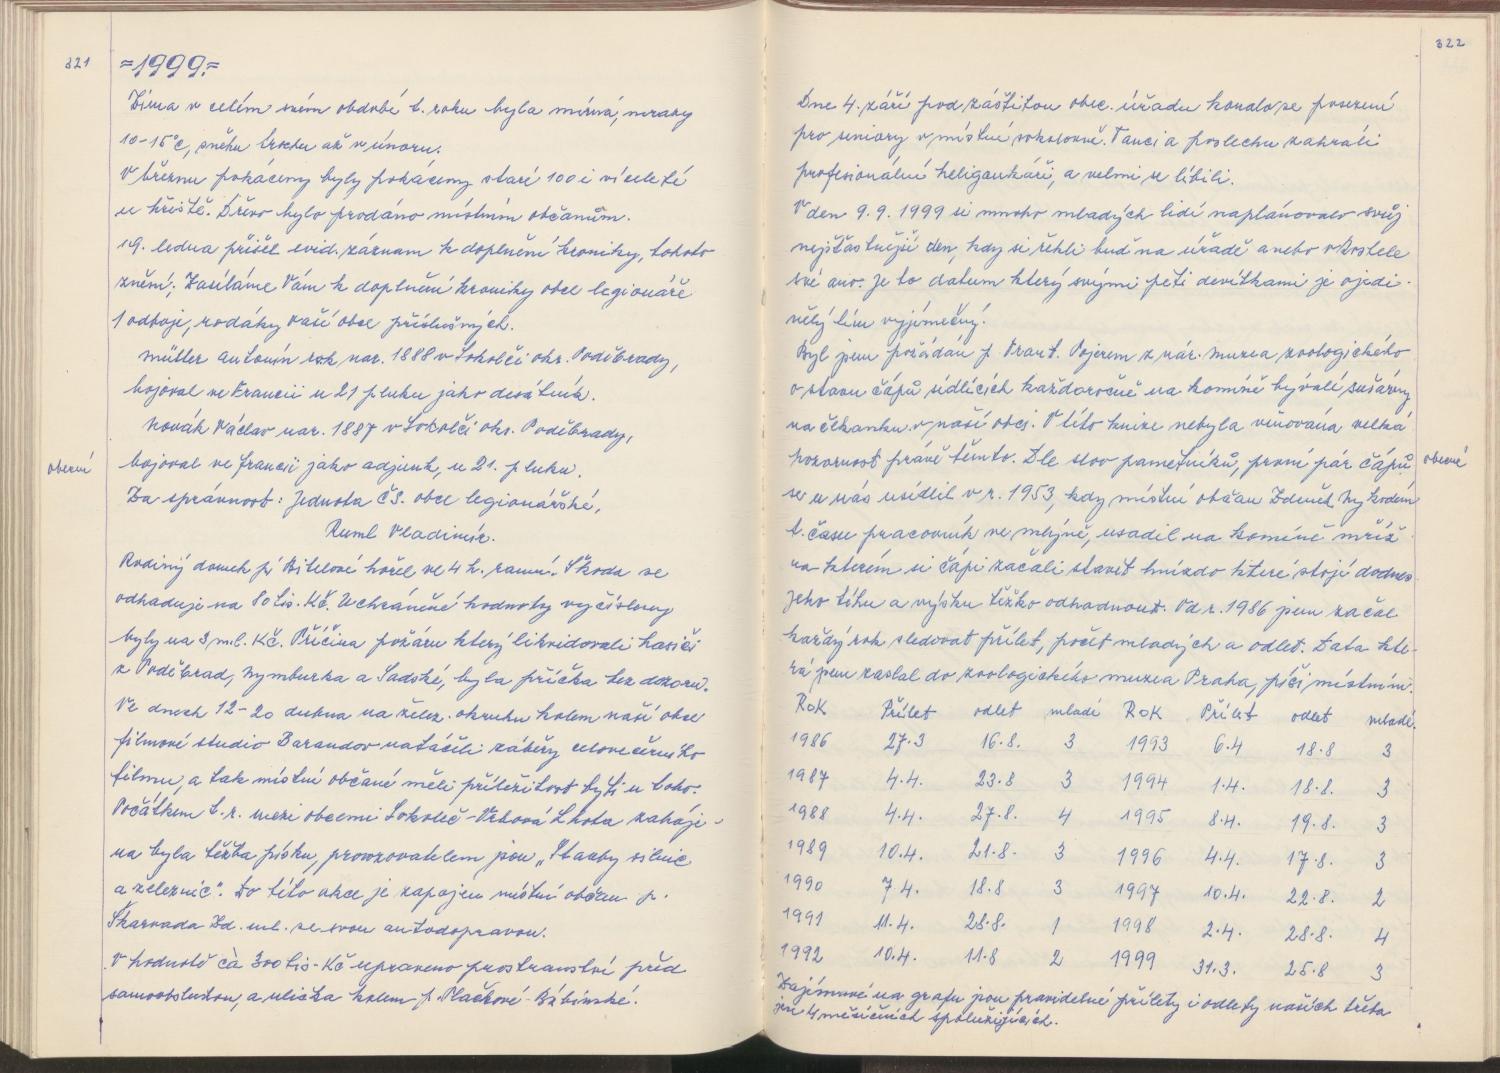 321
=1999.=
Zima v celém svém období t. roku byla mírná, mrazy
10-15°C, sněhu trochu až v únoru.
V březnu pokáceny byly pokáceny staré 100 i víceleté
u hřiště. Dřevo bylo prodáno místním občanům.
19. ledna přišel evid. záznam k doplnění kroniky, tohoto
znění; Zasíláme Vám k doplnění kroniky obce legionáře
1 odboje, rodáky vaší obce příslušných.
Müller Antonín rok nar. 1888 v Sokolči okr. Poděbrady,
bojoval ve Francii u 21 pluku jako desátník.
Novák Václav nar. 1887 v Sokolči okr. Poděbrady,
obecní
bojoval ve francii jako adjunk, u 21. pluku.
Za správnost: Jednota čs. obce legionářské,
Ruml Vladimír.
Rodiný domek pí Bitelové hořel ve 4 h. ranní. Škoda se
odhaduje na 80 tis. Kč. Uchráněné hodnoty vyčísleny
byly na 3 mil. Kč. Příčina požáru který likvidovali hasiči
z Poděbrad, Nymburka a Sadské, byla příčka bez dozoru.
Ve dnech 12-20 dubna na želez. okruhu kolem naší obce
filmové studio Barandov natáčeli záběry celovečerního
filmu, a tak místní občané měli příležitost býti u toho.
Počátkem t. r. mezi obcemi Sokoleč-Vrbová Lhota zaháje-
na byla těžba písku, provozovatelem jsou „Stavby silnic
a železnic". Do této akce je zapojen místní občan p.
Škarvada Zd. ml. se svou autodopravou.
V hodnotě cà 300 tis. Kč upraveno prostranství před
samoobsluhou, a ulička kolem p. Plačkové - Bábinské.
322
Dne 4. září pod záštitou obec. úřadu konalo se posezení
pro seniory v místní sokolovně. Tanci a poslechu zahráli
profesionální heligonkáři, a velmi se líbili.
V den 9.9.1999 si mnoho mladých lidí naplánovalo svůj
nejšťastnější den, kdy si řekli buď na úřadě anebo v kostele
své ano. Je to datum který svými pěti devítkami je ojedi-
nělý tím vyjímečný.
Byl jsem požádán p. Frant. Pojerem z nár. muzea zoologického
o stavu čápů sídlících každoročně na komíně bývalé sušárny
na čekanku v naší obci. V této knize nebyla věnována velká
pozornost právě těmto. Dle slov pamětníků, první pár čápů
obecné
se u nás usídlil v r. 1953, kdy místní občan Zdeněk Nykodém
t. času pracovník ve mlýně, usadil na komíně mříž
na kterém si čápi začali stavět hnízdo které stojí dodnes
jeho tíhu a výšku těžko odhadnout. Od r. 1986 jsem začal
každý rok sledovat přílet, počet mladých a odlet. Data kte-
rá jsem zaslal do zoologického muzea Praha, píši místním.
Rok Přílet odlet mladé Rok Přílet odlet mladé.
1986 27.3 16.8. 3 1993 6.4 18.8 3
1987 4.4. 23.8 3 1994 1.4. 18.8. 3
1988 4.4. 27.8. 4 1995 8.4. 19.8. 3
1989 10.4. 21.8. 3 1996 4.4. 17.8. 3
1990 7 4. 18.8 3 1997 10.4. 22.8. 2
1991 11.4. 28.8. 1 1998 2.4. 28.8. 4
1992 10.4. 11.8 2 1999 31.3. 25.8 3
Zajímavé na grafu jsou pravidelné přílety i odlety našich třeba
jen 4 měsíčních spolužijících.